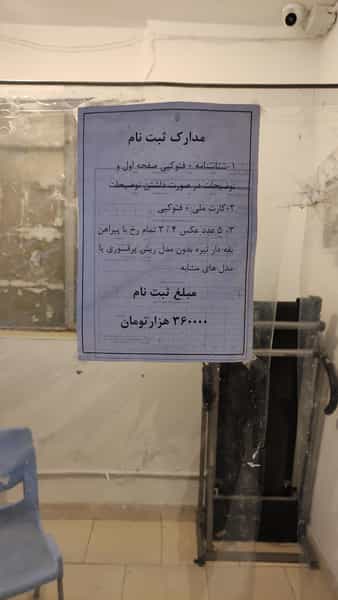 مدارک ثبت نام
۱-شناسنامه + فتوکپی صفحه اول و
توضیحات در صورت داشتن توضیحات
۲-کارت ملی + فتوکپی
۳- ۵ عدد عکس ۴ / ۳ تمام رخ با پیراهن
یقه دار تیره بدون مدل ریش پرفسوری یا
مدل های مشابه
مبلغ ثبت نام
۳۶۰۰۰۰ هزارتومان